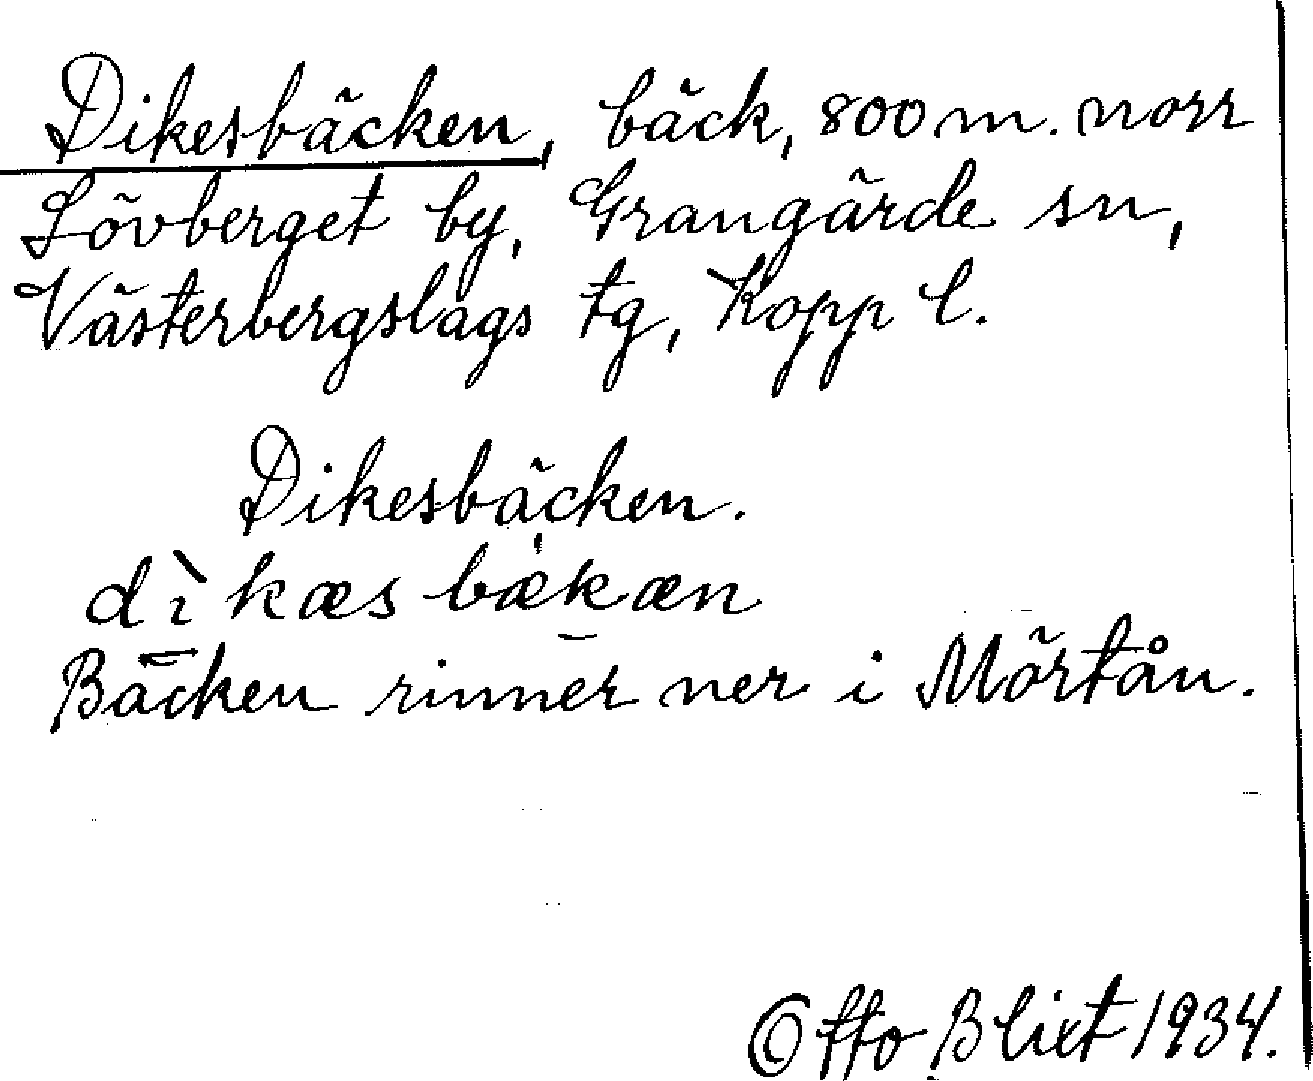 Dikesbäcken, bäck, 800 m. norr
Lövberget by, Grangärde sn,
Västerbergslags tg, Kopp l.
Dikesbäcken.
dìkæsbækæn
Bäcken rinner ner i Mörtån.
Otto Blixt 1934.